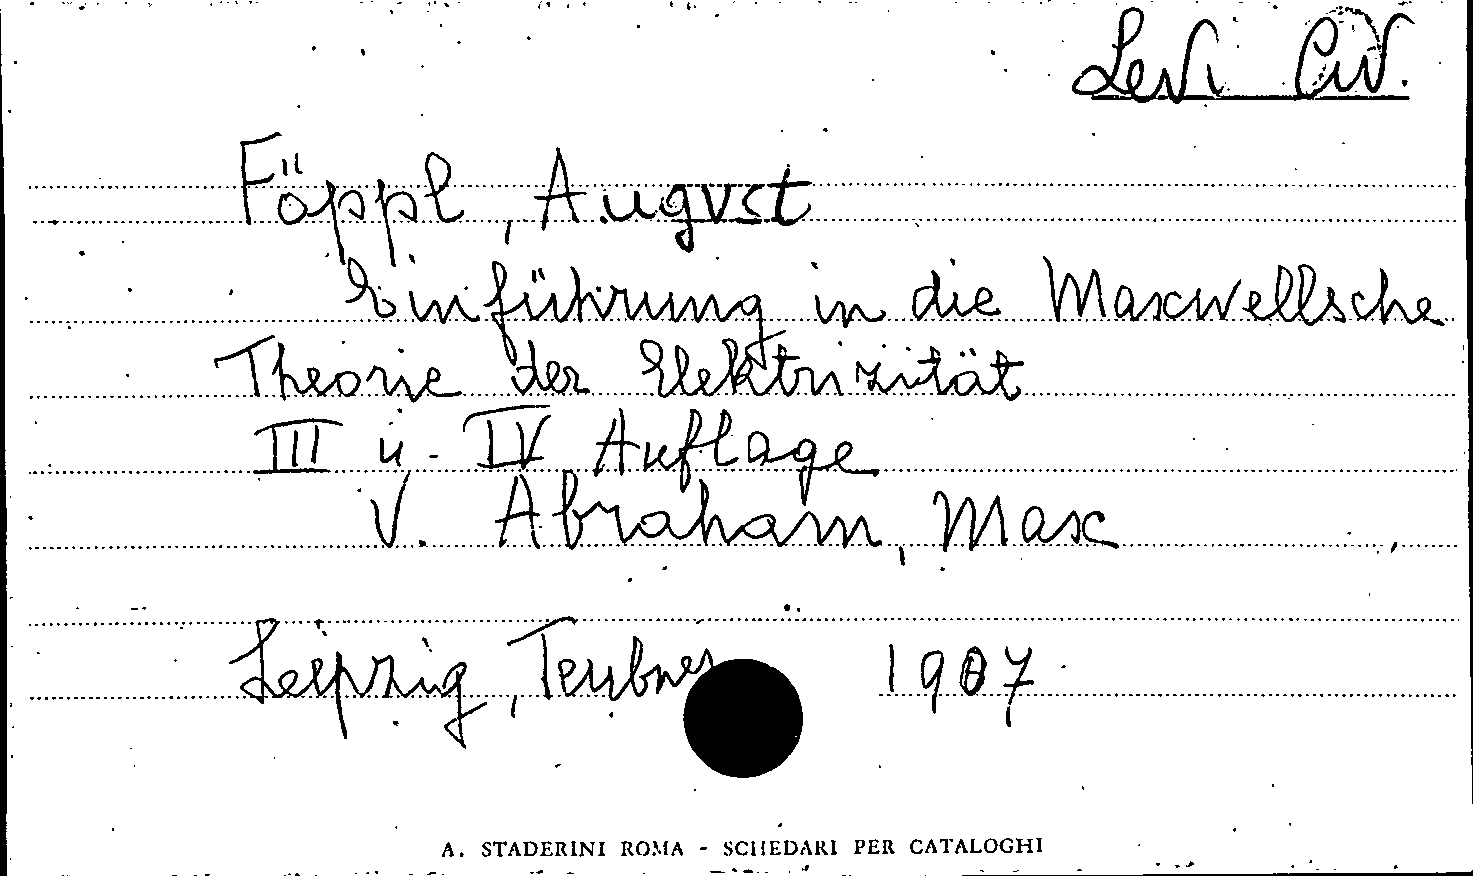 Levi Civ.
Föppl, August
Einführung in die Maxwellsche
Theorie der Elektrizität
III u. IV Auflage
V. Abraham, Max
Leipzig, Teubner 1907
A. STADERINI ROMA - SCHEDARI PER CATALOGHI